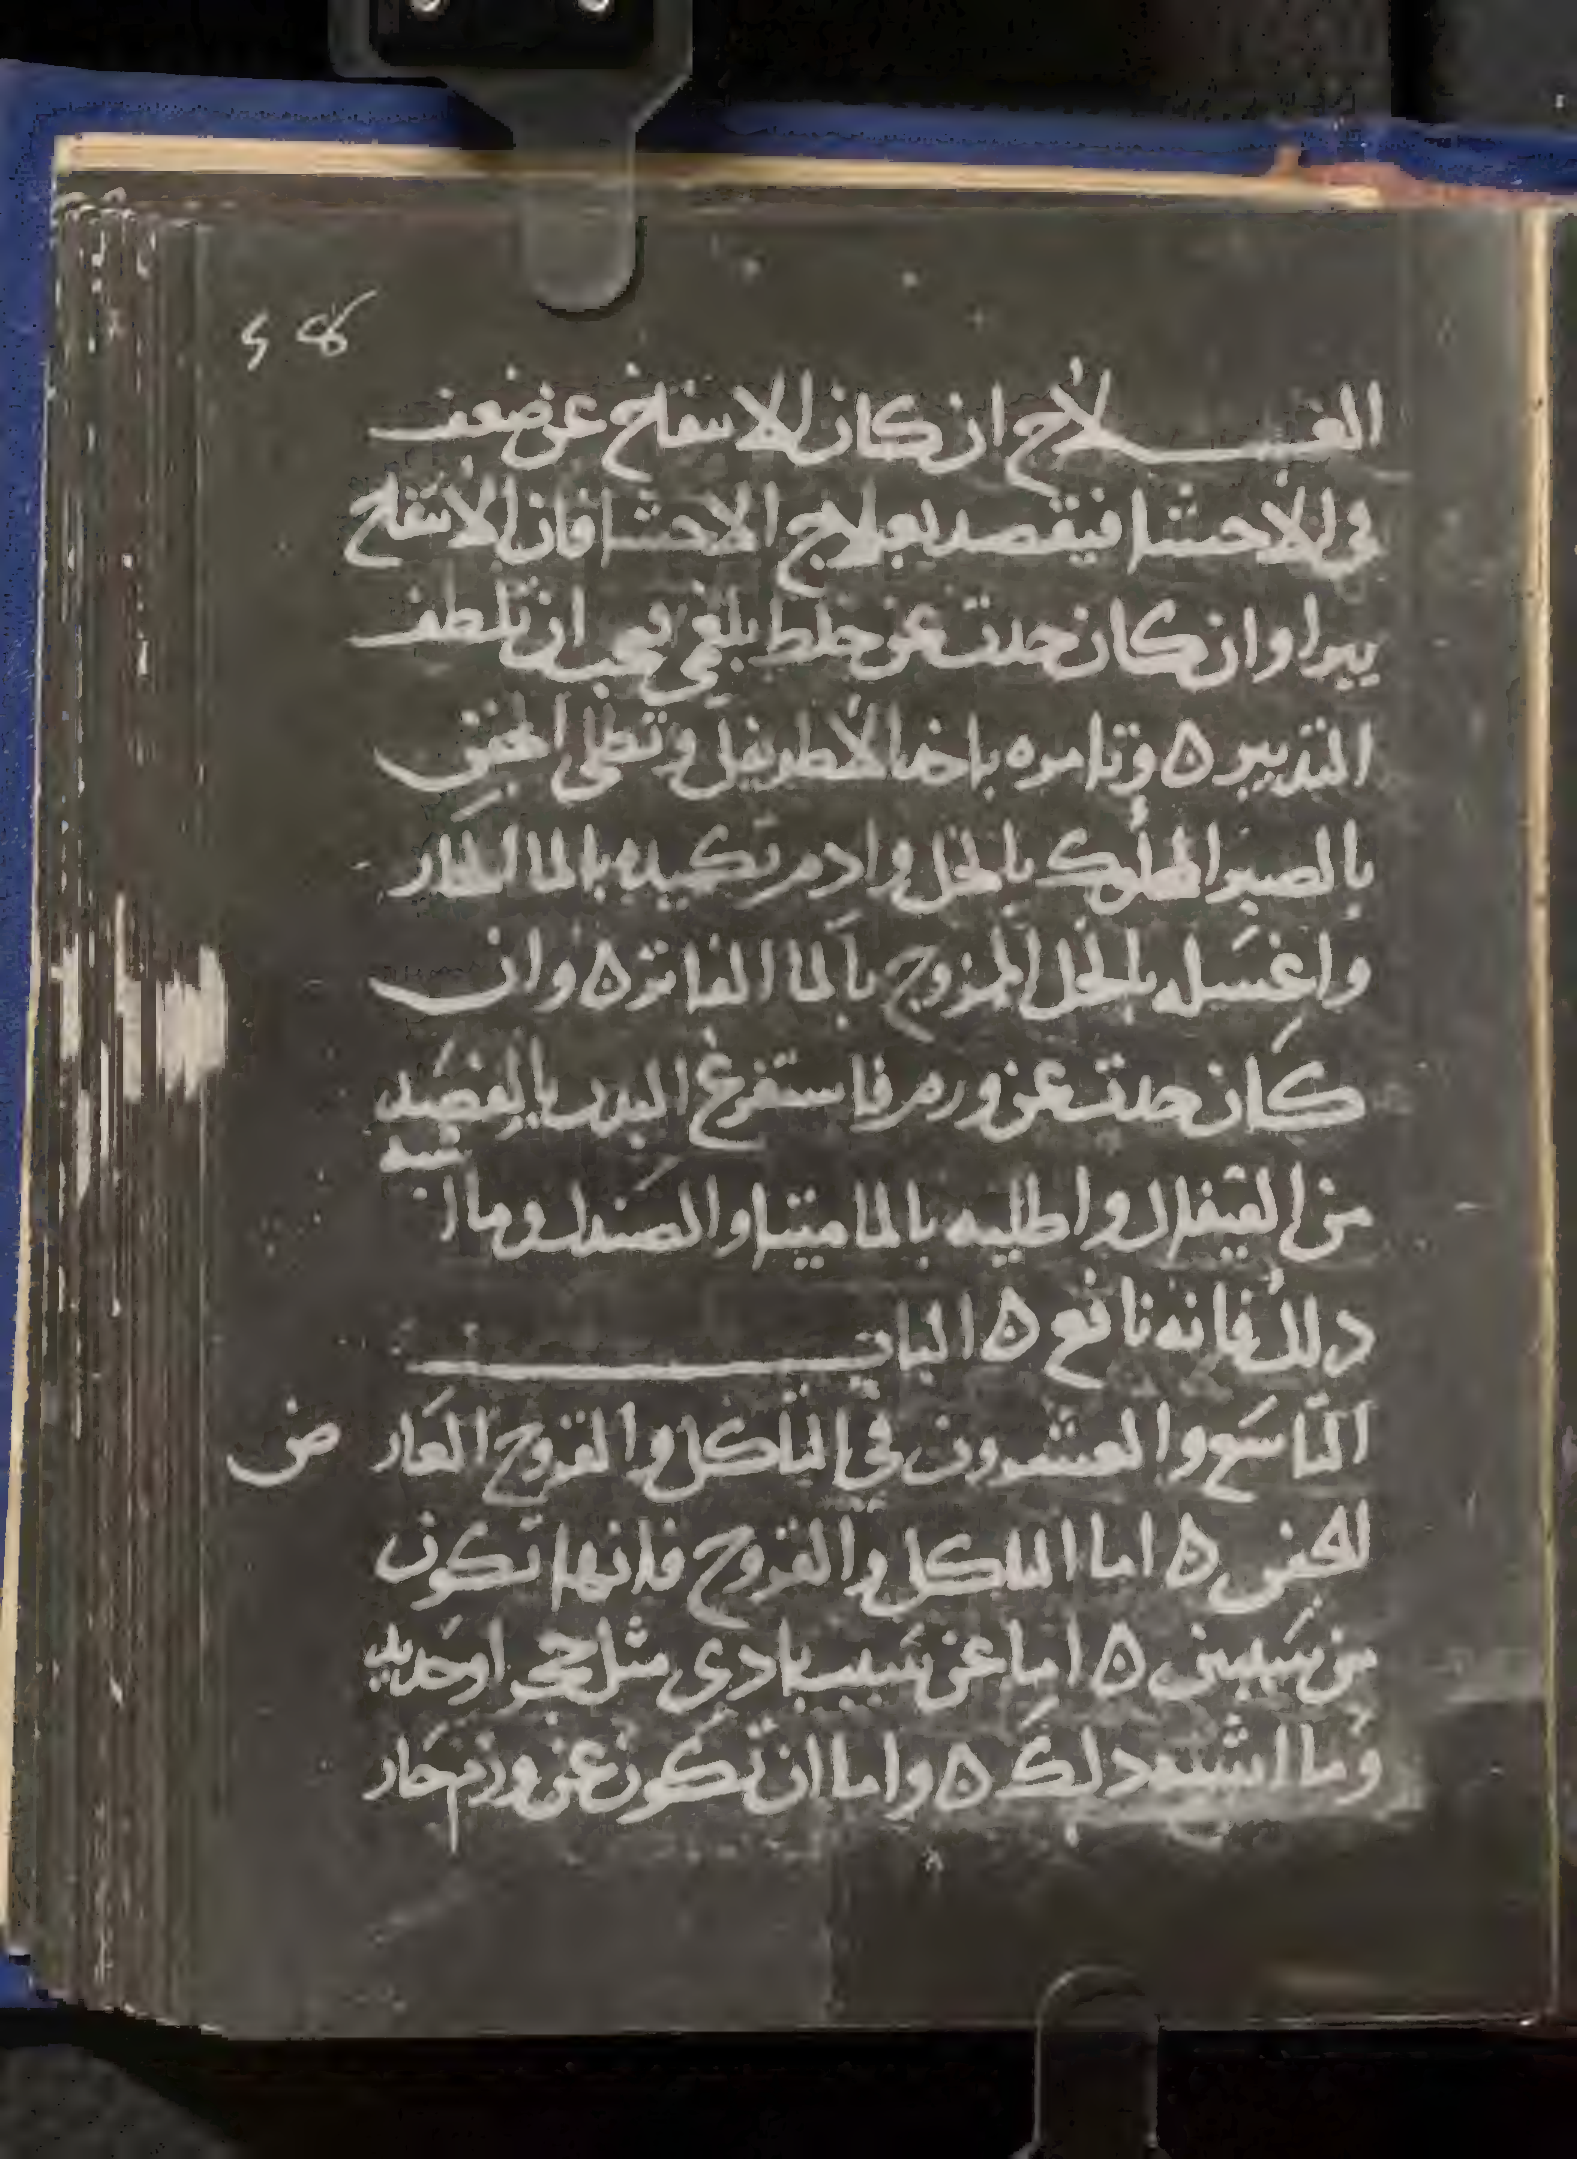 العـــلاج ان كان الانتفاخ عن ضعف
في الاحشا فيقصد بعلاج الاحشا فان الانتفاخ
يبرا وان كان حدث عن خلط بلغمي فيجب ان تلطف
التدبير ه وتامره باخذ الاطريفل وتطلي الجفن
بالصبر المحلوك بالخل وادم تكميده بالما الحار
واغسله بالخل الممزوج بالما الفاتر ه وان
كان حدث عن ورم فاستفرغ البدن بالفصد
من القيفال واطليه بالماميتا والصندل وما اشبه
دلك فانه نافع ه الباب
التاسع والعشرون في التاكل والقروح العارض
لجفن ه اما التاكل والقروح فانها تكون
من سببين ه اما عن سبب بادي مثل حجر او حديد
وما اشبه دلك ه واما ان تكون عن ورم حار